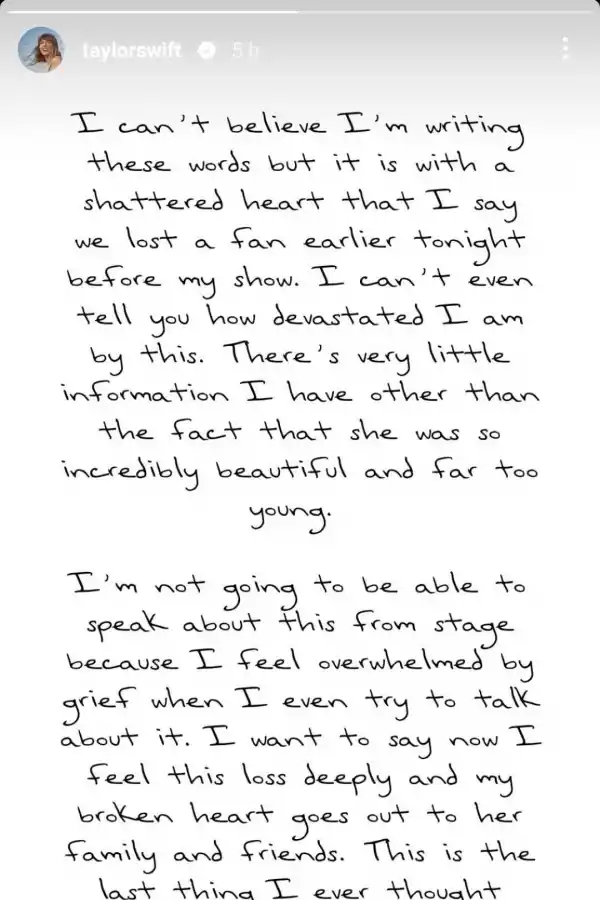 taylorswift 5 h
I can't believe I'm writing
these words but it is with a
shattered heart that I say
we lost a fan earlier tonight
before my show. I can't even
tell you how devastated I am
by this. There's very little
information I have other than
the fact that she was so
incredibly beautiful and far too
young.
I'm not going to be able to
speak about this from stage
because I feel overwhelmed by
grief when I even try to talk
about it. I want to say now I
feel this loss deeply and my
broken heart goes out to her
family and friends. This is the
last thing I ever thought